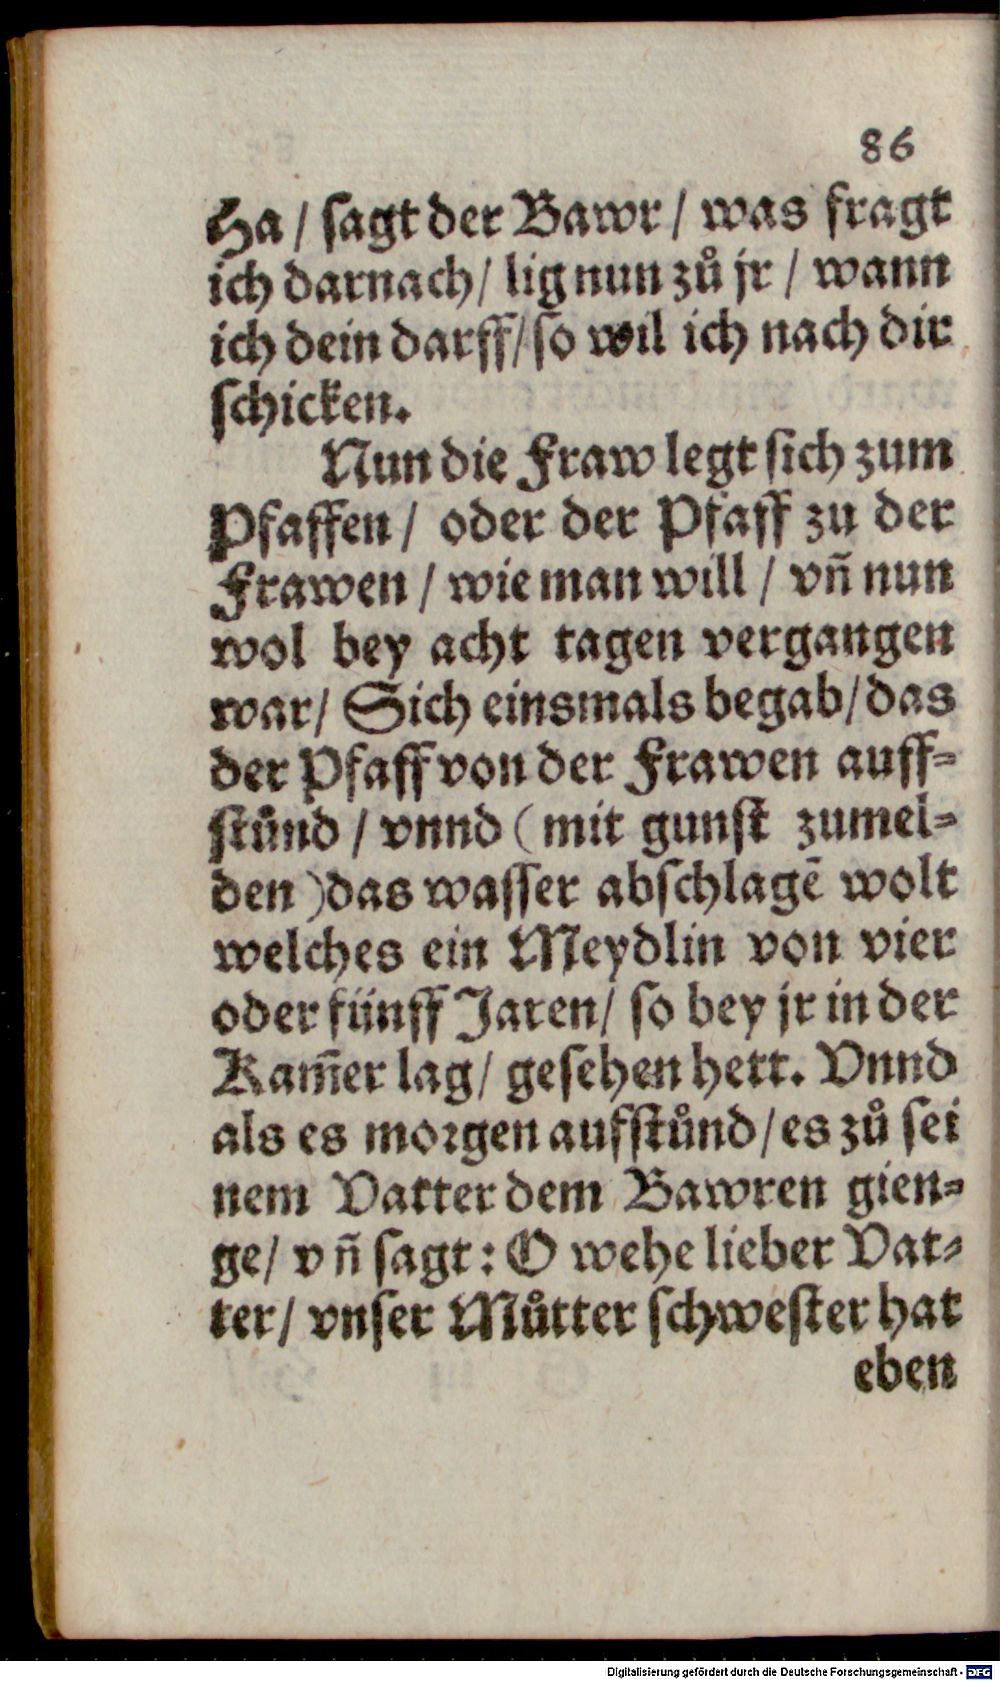 86
Ha / sagt der Bawr / was fragt
ich darnach / lig nun zů jr / wann
ich dein darff / so wil ich nach dir
schicken.
Nun die Fraw legt sich zum
Pfaffen / oder der Pfaff zu der
Frawen / wie man will / vn̄ nun
wol bey acht tagen vergangen
war / Sich einsmals begab / das
der Pfaff von der Frawen auff-
stůnd / vnnd (mit gunst zumel-
den) das wasser abschlagē wolt
welches ein Meydlin von vier
oder fünff Jaren / so bey jr in der
Kam̄er lag / gesehen hett. Vnnd
als es morgen aufstůnd / es zů sei
nem Vatter dem Bawren gien-
ge / vn̄ sagt: O wehe lieber Vat-
ter / vnser Můtter schwester hat
eben
Digitalisierung gefördert durch die Deutsche Forschungsgemeinschaft - DFG